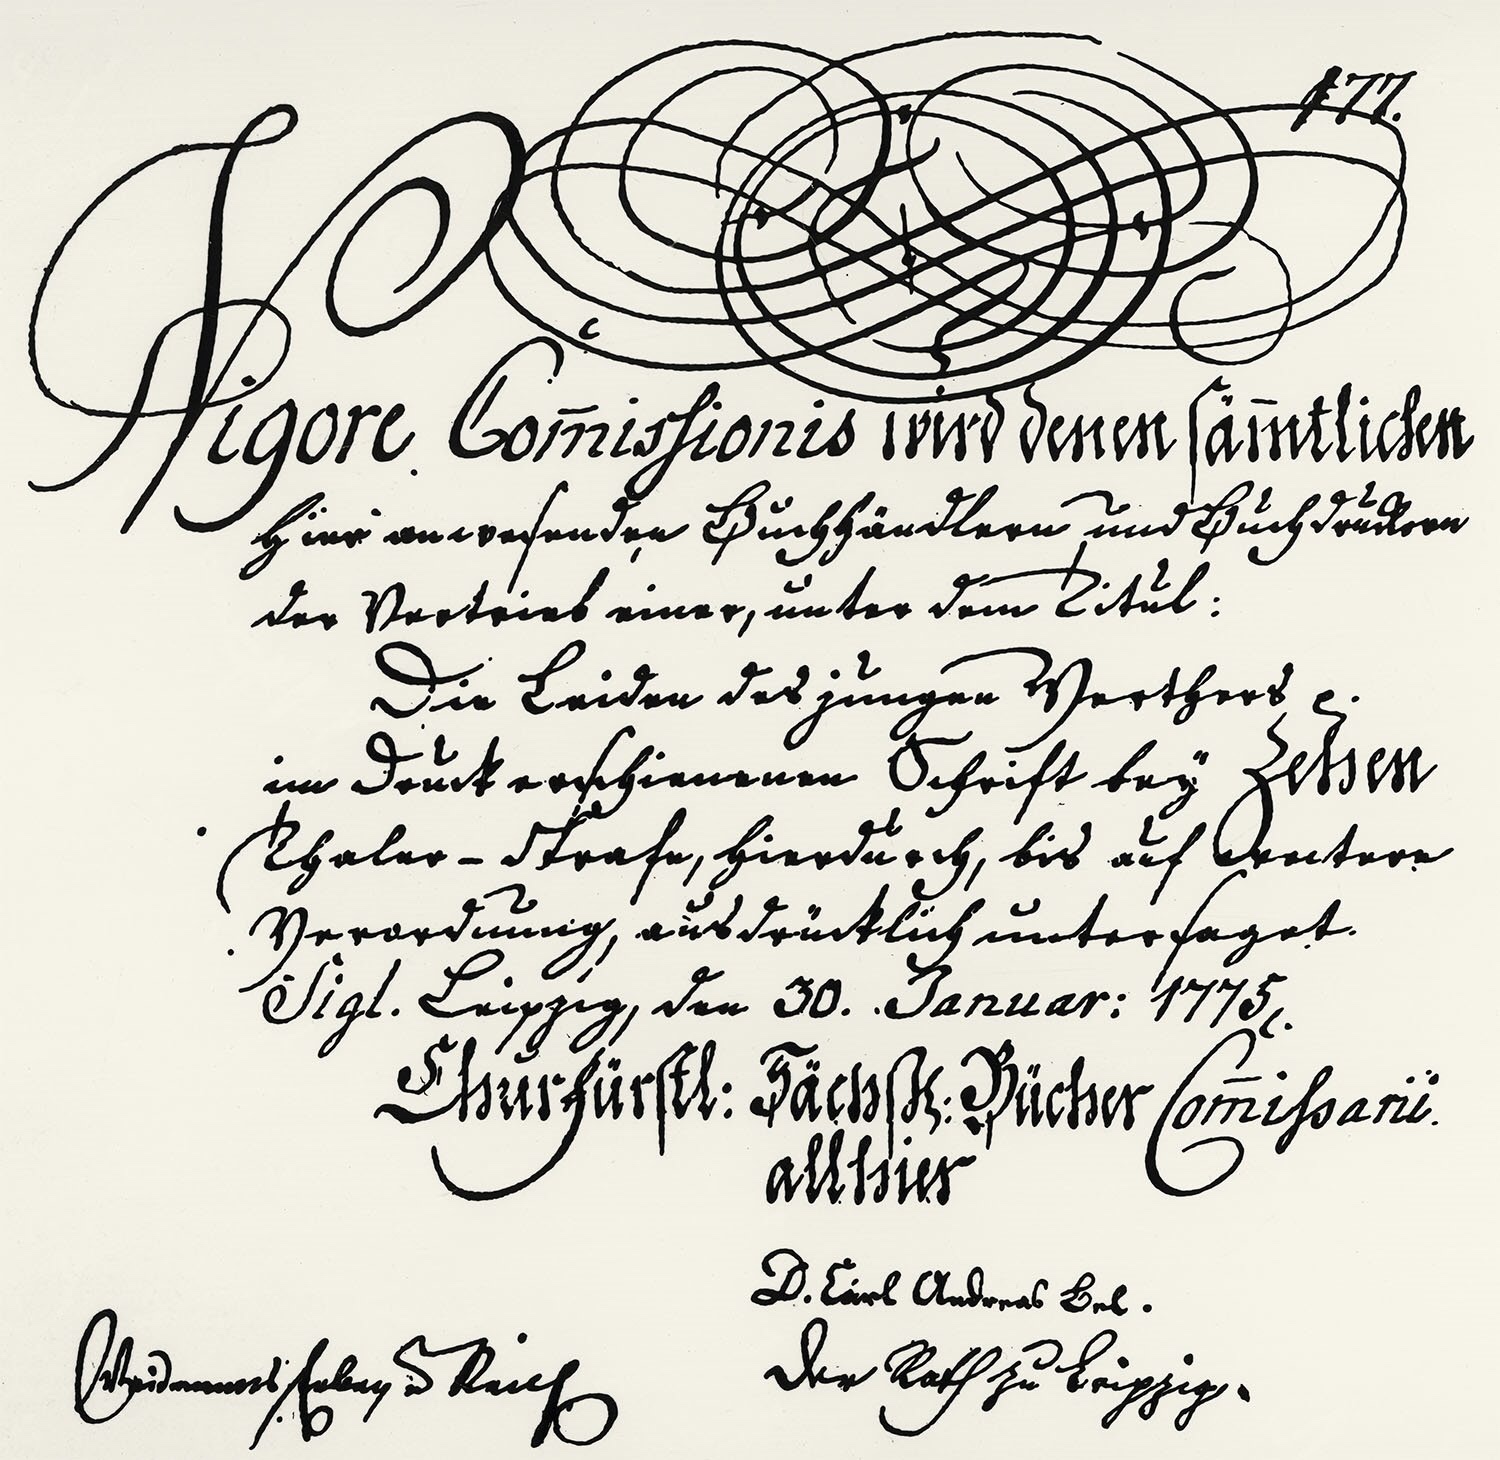 177.
Vigore Com̅issionis wird denen säm̅tlichen
hier anwesenden Buchhändlern und Buchdruckern
der Vertrieb einer, unter dem Titul:
Die Leiden des jungen Werthers p.
im Druck erschienenen Schrift bey Zehen
Thaler - Strafe, hierdurch, bis auf weitere
Verordnung, ausdrücklich untersaget.
Sigl. Leipzig, den 30. Januar: 1775.
Churfürstl: Sächß: Bücher Com̅issarii
allhier
D. Carl Andreas Bel.
Der Rath zu Leipzig.
Weidmanns Erben u Reich